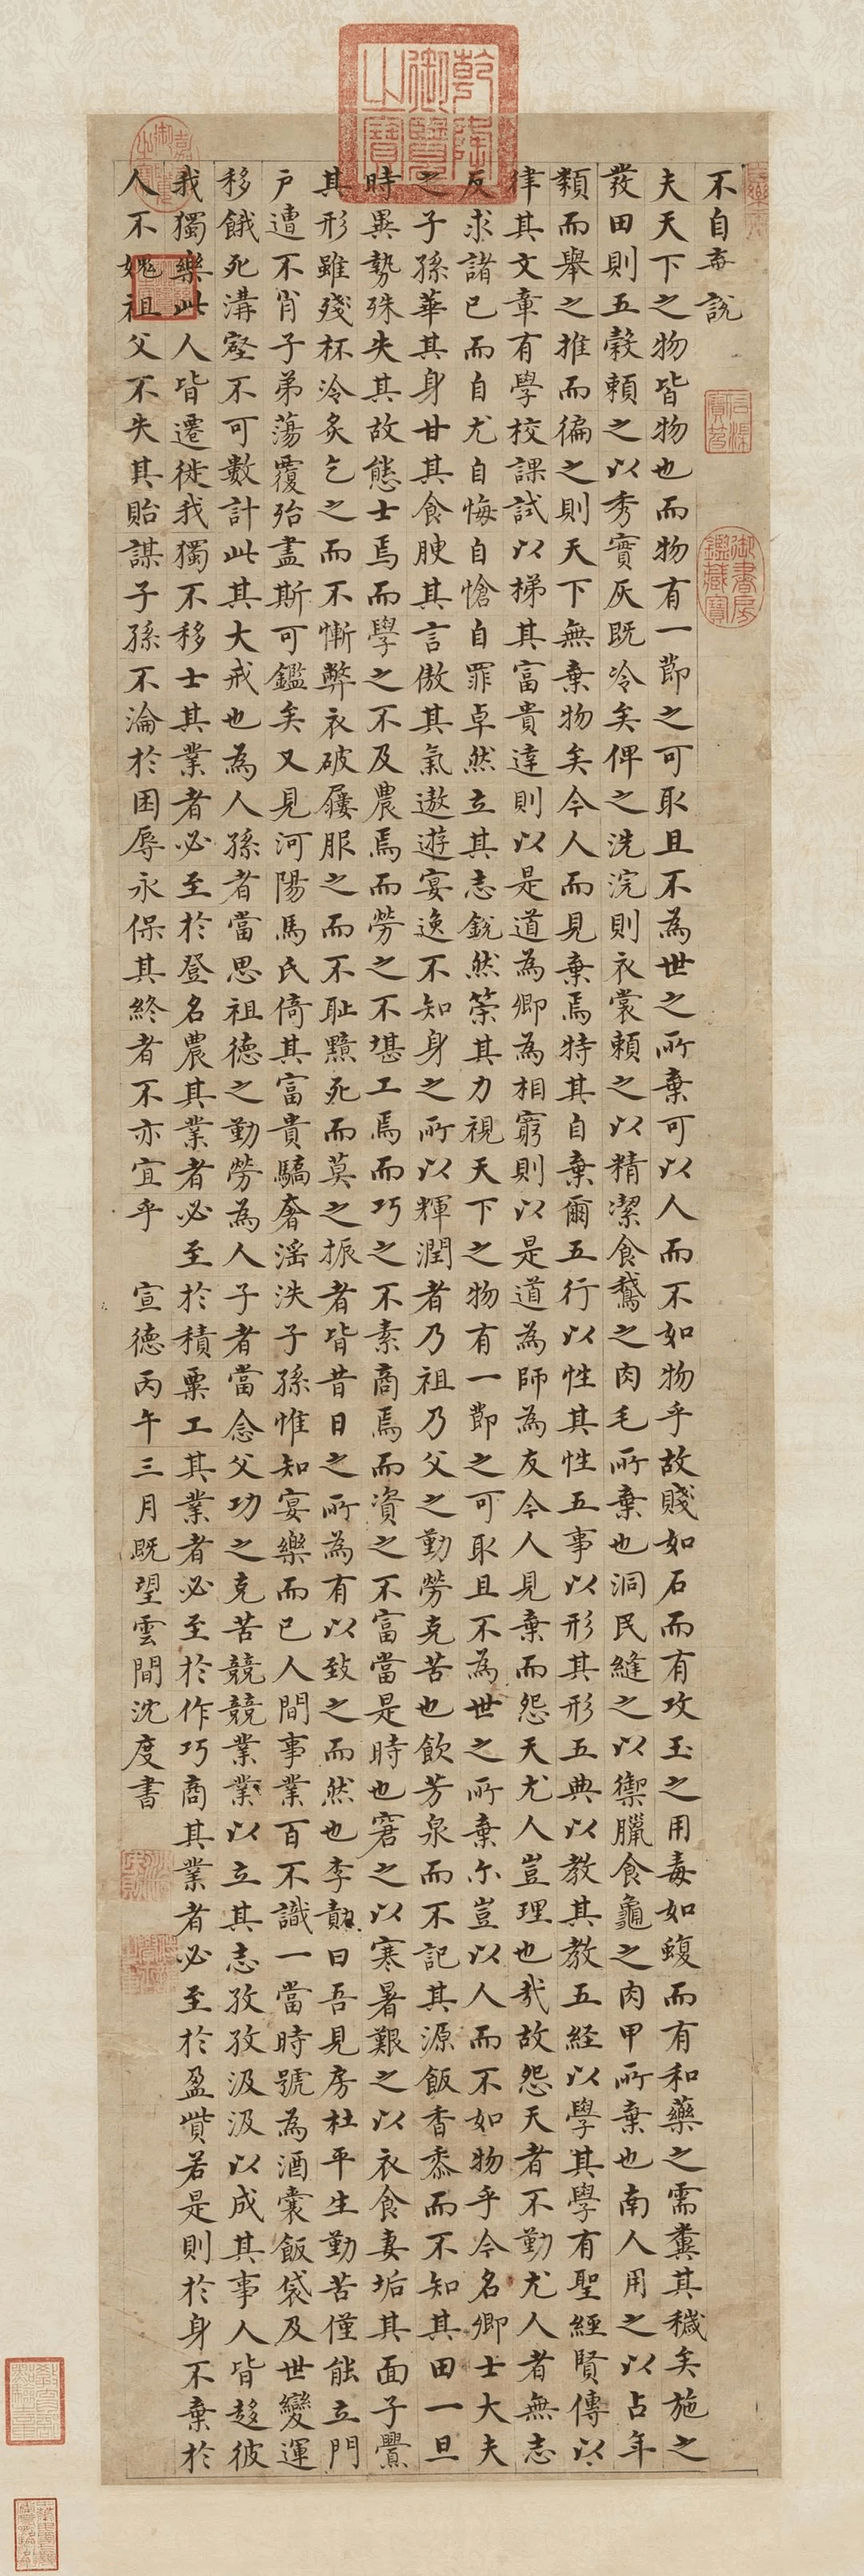 不自棄說
夫天下之物皆物也而物有一節之可取且不為世之所棄可以人而不如物乎故賤如石而有攻玉之用毒如蝮而有和藥之需糞其穢矣施之
發田則五穀賴之以秀實灰既冷矣俾之洗浣則衣裳賴之以精潔食鵝之肉毛所棄也洞民縫之以禦臘食龜之肉甲所棄也南人用之以占年
類而舉之推而徧之則天下無棄物矣今人而見棄焉特其自棄爾五行以性其性五事以形其形五典以教其教五經以學其學有聖經賢傳以
律其文章有學校課試以梯其富貴達則以是道為卿為相窮則以是道為師為友今人見棄而怨天尤人豈理也哉故怨天者不勤尤人者無志
反求諸己而自尤自悔自愴自罪卓然立其志銳然策其力視天下之物有一節之可取且不為世之所棄尒豈以人而不如物乎今名卿士大夫
之子孫華其身甘其食腴其言傲其氣遨遊宴逸不知身之所以輝潤者乃祖乃父之勤勞克苦也飲芳泉而不記其源飯香黍而不知其田一旦
時異勢殊失其故態士焉而學之不及農焉而勞之不堪工焉而巧之不素商焉而資之不富當是時也窘之以寒暑艱之以衣食妻垢其面子釁
其形雖殘杯冷炙乞之而不慚弊衣破屨服之而不恥黯死而莫之振者皆昔日之所為有以致之而然也李勣曰吾見房杜平生勤苦僅能立門
戶遭不肖子弟蕩覆殆盡斯可鑑矣又見河陽馬氏倚其富貴驕奢滛泆子孫惟知宴樂而已人間事業百不識一當時號為酒囊飯袋及世變運
移餓死溝壑不可數計此其大戒也為人孫者當思祖德之勤勞為人子者當念父功之克苦競競業業以立其志孜孜汲汲以成其事人皆趍彼
我獨樂此人皆遷徙我獨不移士其業者必至於登名農其業者必至於積粟工其業者必至於作巧商其業者必至於盈貲若是則於身不棄於
人不媿祖父不失其貽謀子孫不淪於困辱永保其終者不亦宜乎 宣德丙午三月既望雲間沈度書
乾隆御覽之寶
嘉慶御覽之寶
石渠寶笈
御書房鑑藏寶